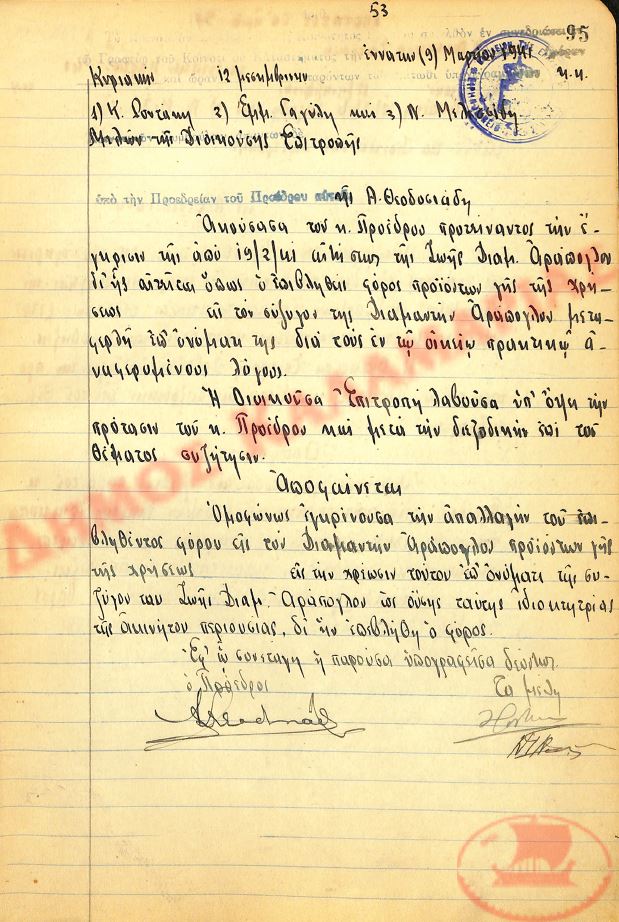 53
95
ἐννάτην (9) Μαρτίου 1941
Κυριακὴν 12 μεσημβρινὴν κ.κ.
1) Κ. Ροντάκη 2) Ἐμμ. Γαγύλη καὶ 3) Ν.
Μελῶν τῆς Διοικούσης Ἐπιτροπῆς
ὑπὸ τὴν Προεδρείαν τοῦ Προέδρου αὐτῆς Α. Θεοδοσιάδη
Ἀκούσασα τοῦ κ. Προέδρου προτείναντος τὴν ἔ-
γκρισιν τῆς ἀπὸ 19/2/41 αἰτήσεως τῆς Ζωῆς Διαμ. Ἀράπογλου
δι' ἧς αἰτεῖται ὅπως ὁ ἐπιβληθεὶς φόρος προϊόντων γῆς τῆς χρή-
σεως εἰς τὸν σύζυγον της Διαμαντὴν Ἀράπογλου μετα-
φερθῇ ἐπ' ὀνόματι της διὰ τοὺς ἐν τῷ οἰκείῳ πρακτικῷ ἀ-
ναφερομένους λόγους.
Ἡ Διοικοῦσα Ἐπιτροπὴ λαβοῦσα ὑπ' ὄψει τὴν
πρότασιν τοῦ κ. Προέδρου καὶ μετὰ τὴν διεξοδικὴν ἐπὶ τοῦ
θέματος συζήτησιν.
Ἀποφαίνεται
Ὁμοφώνως ἐγκρίνουσα τὴν ἀπαλλαγὴν τοῦ ἐπι-
βληθέντος φόρου εἰς τὸν Διαμαντὴν Ἀράπογλου προϊόντων γῆς
τῆς χρήσεως εἰς τὴν χρέωσιν τούτου ἐπ' ὀνόματι τῆς συ-
ζύγου του Ζωῆς Διαμ. Ἀράπογλου ὡς οὔσης ταύτης ἰδιοκτητρίας
τῆς ἀκινήτου περιουσίας, δι' ἣν ἐπεβλήθη ὁ φόρος.
Ἐφ' ᾧ συνετάγη ἡ παροῦσα ὑπογραφεῖσα δεόντως.
ὁ Πρόεδρος Τὰ μέλη
ΔΗΜΟΣ ΚΑΛΑΜΑΡΙΑΣ